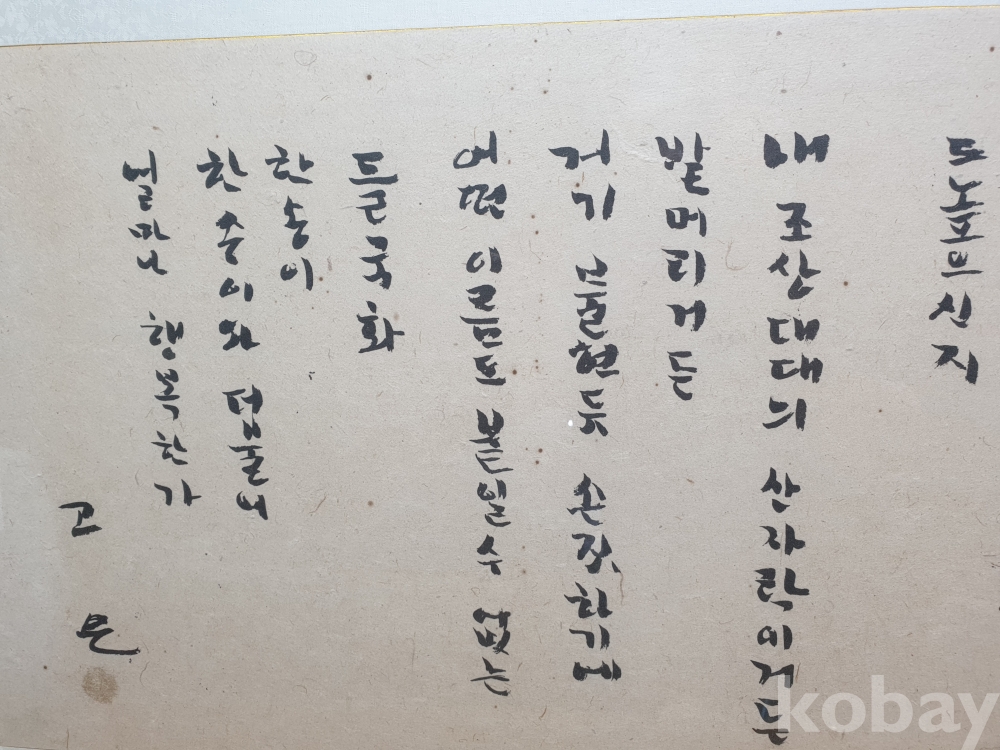 드높으신지
내 조상대대의 산자락이거든
밭머리거든
거기 불현듯 손짓하기에
어떤 이름도 붙일수 없는
들국화
한송이
한 송이와 더불어
얼마나 행복한가
고 은
kobay